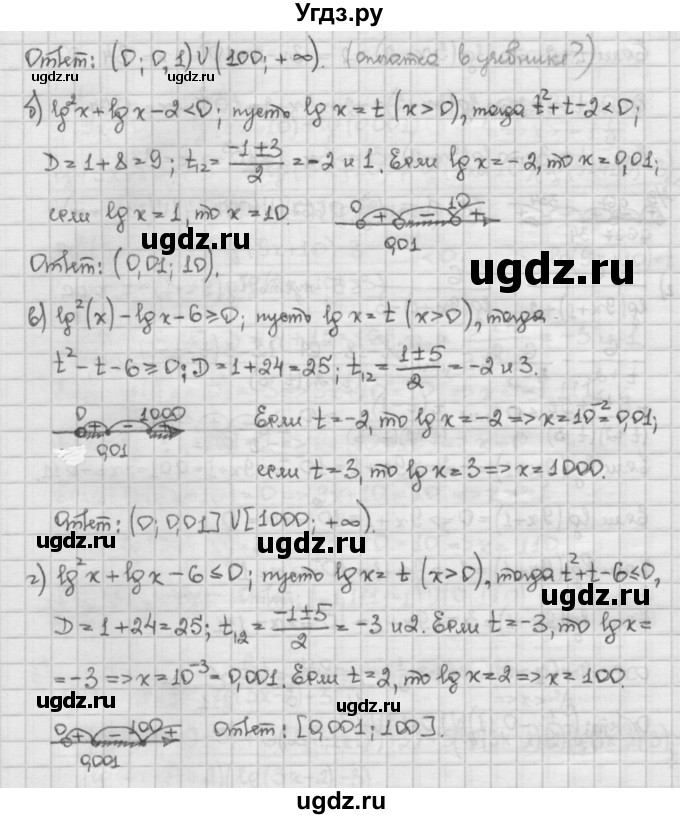 Угдз.ру
Ответ: (0; 0,1)∪(100; +∞). (опечатка в учебнике?)
uqdz.ru
б) lg²x+lg x−2<0; пусть lg x=t (x>0), тогда t²+t−2<0;
D=1+8=9; t₁₂= (−1±3)/2 =−2 и 1. Если lg x=−2, то x=0,01;
если lg x=1, то x=10.
0 + − 10 +
0,01
uqdz.ru
Ответ: (0,01; 10).
uqdz.ru
uqdz.ru
в) lg²(x)−lg x−6≥0; пусть lg x=t (x>0), тогда
t²−t−6≥0; D=1+24=25; t₁₂= (1±5)/2 =−2 и 3.
0 + − 1000 +
0,01
Если t=−2, то lg x=−2 => x=10⁻²=0,01;
если t=3, то lg x=3 => x=1000.
Ответ: (0; 0,01]∪[1000; +∞).
uqdz.ru
г) lg²x+lg x−6≤0; пусть lg x= t (x>0), тогда t²+t−6≤0,
uqdz.ru
D=1+24=25; t₁,₂= (−1±5)/2 =−3 и 2. Если t=−3, то lg x=
=−3 => x=10⁻³=0,001. Если t=2, то lg x=2 => x=100.
uqdz.ru
uqdz.ru
0 + − 100 +
0,001
Ответ: [0,001; 100].
uqdz.ru
uqdz.ru